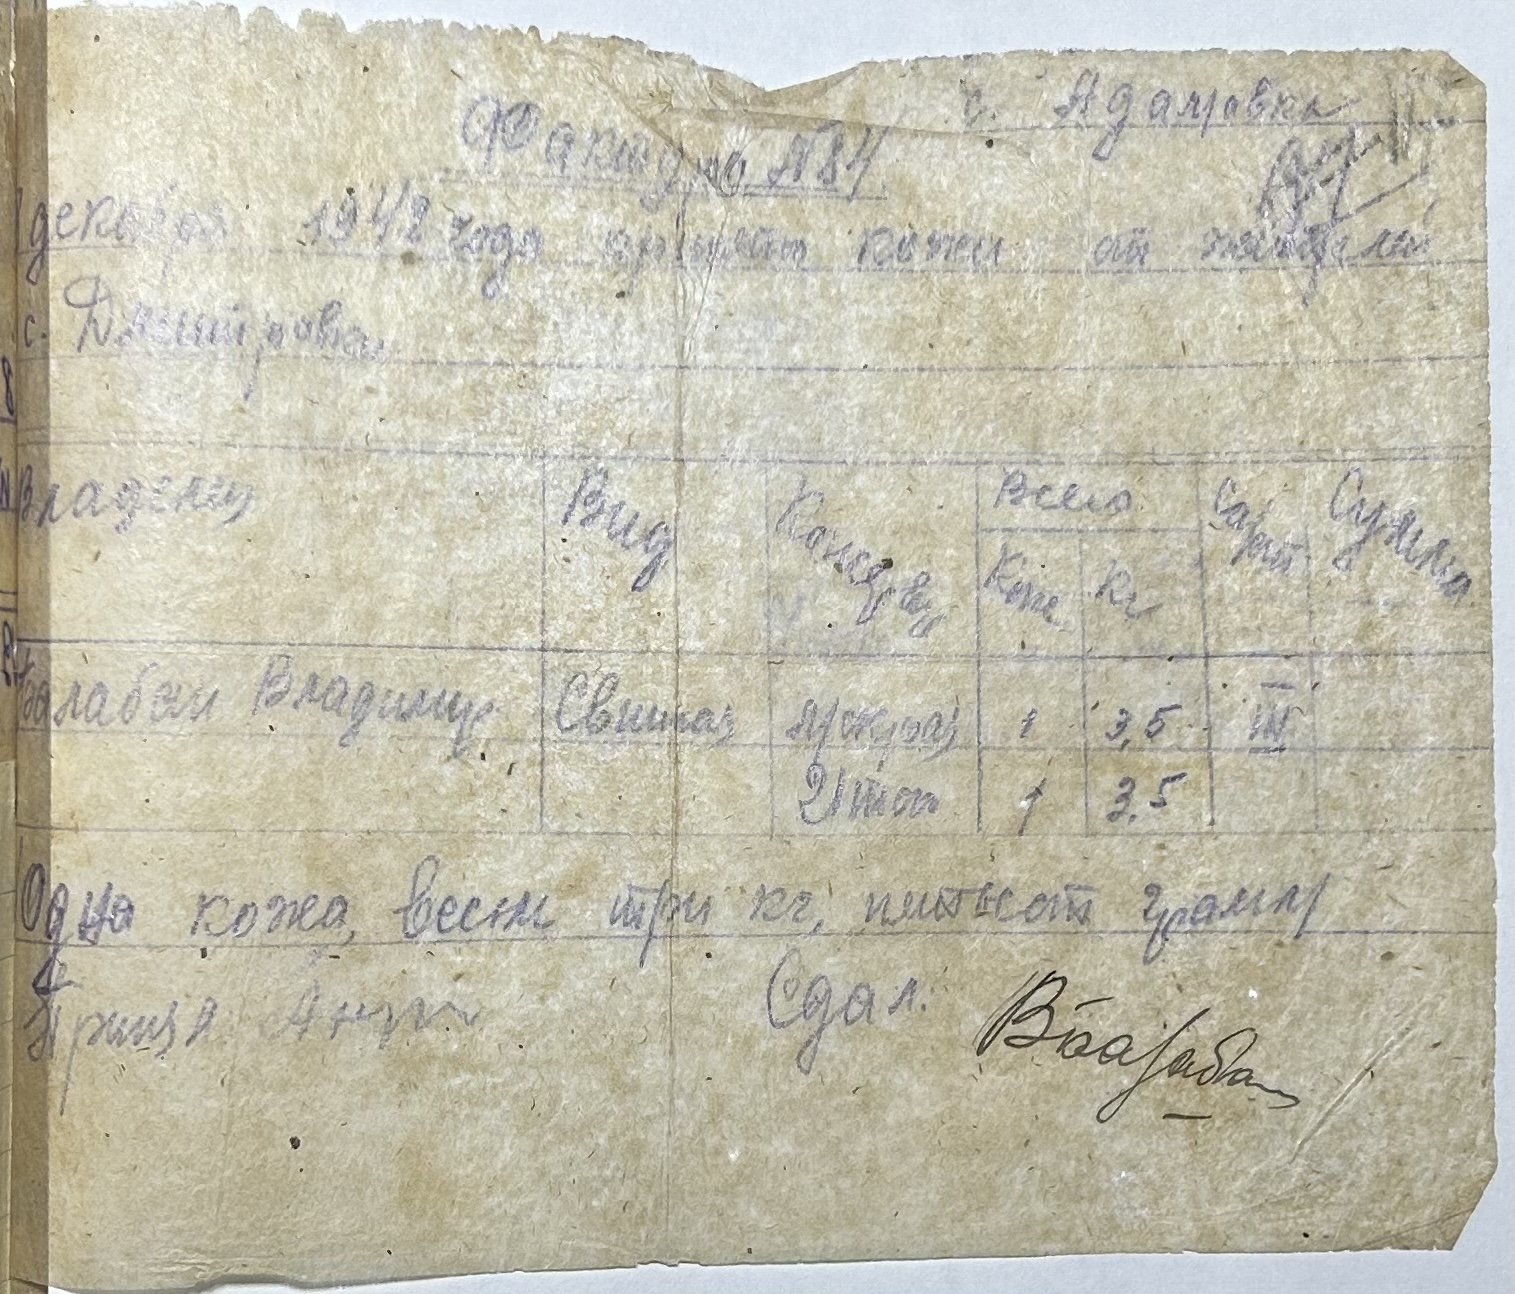 с. Адамовка
Фактура №84
декабря 1942 года принято кожи от жителя
с. Дмитровка
Владелец Вид Консерв Всего Сорт Сумма
Кож Кг
Балабан Владимир Свиная мокрая 1 3,5 III
Итого 1 3,5
Одна кожа, весом три кг, пятьсот грамм
Принял: Сдал: ВБалабан